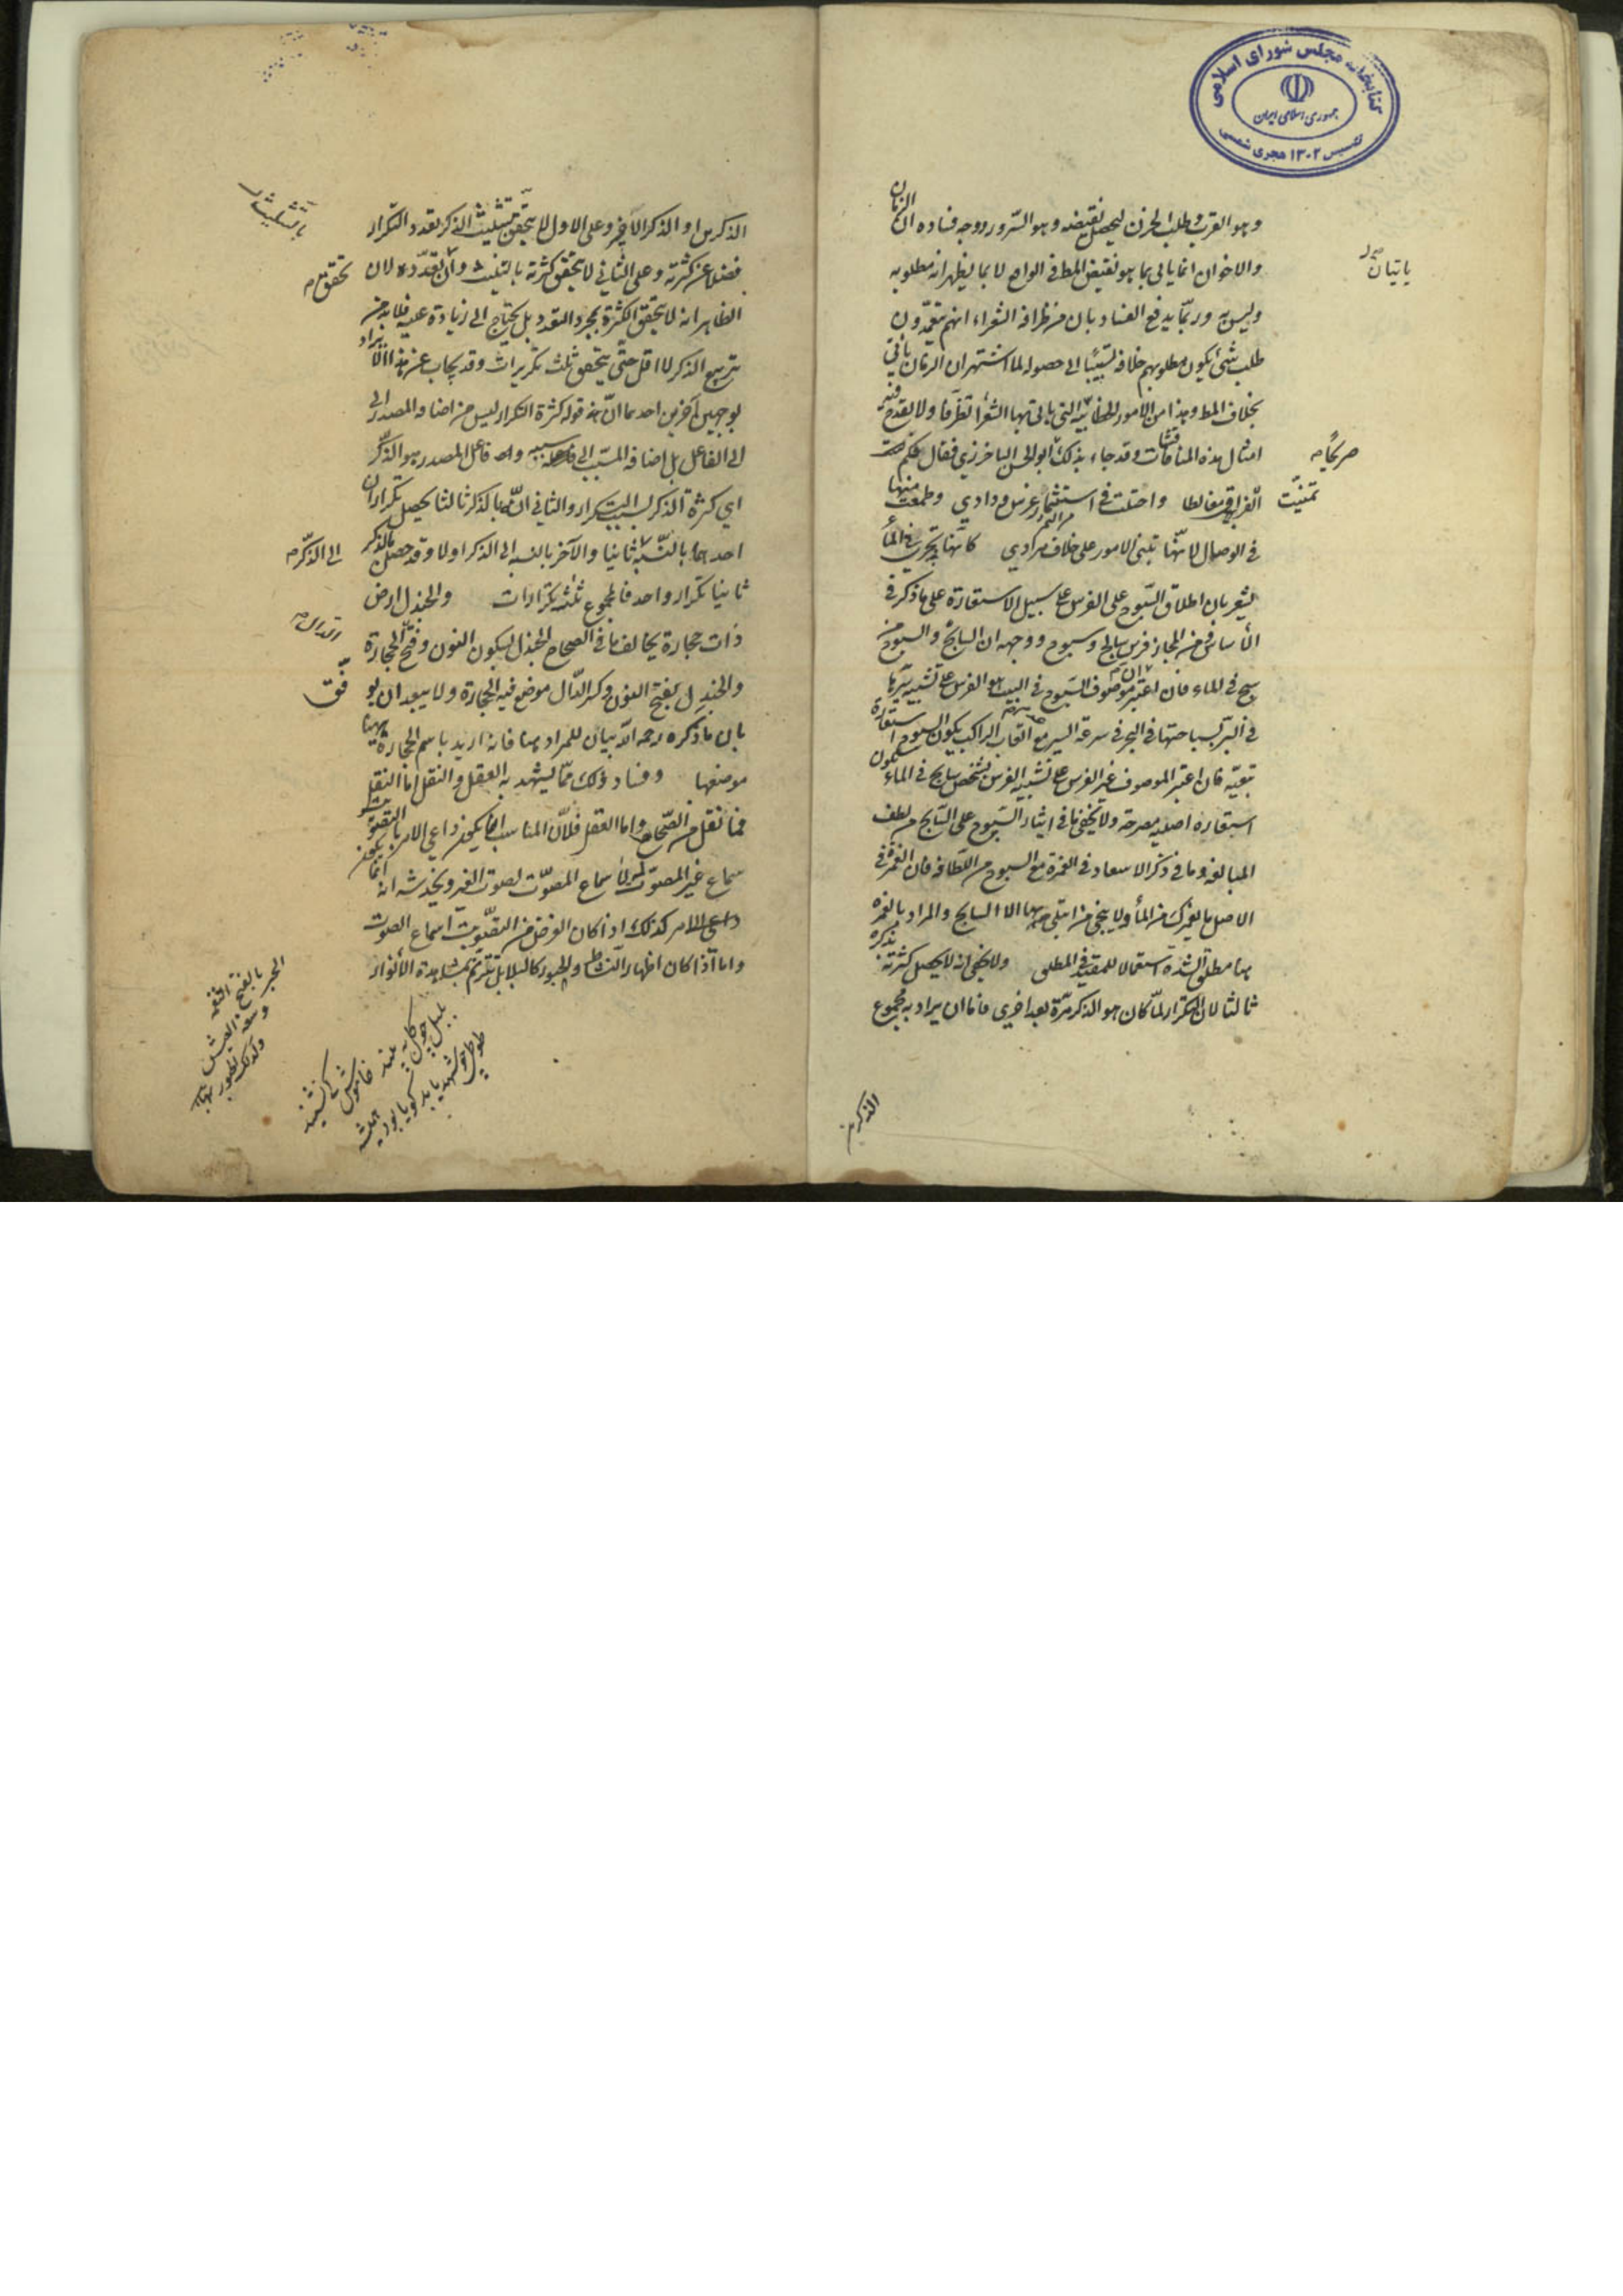 كتابخانه مجلس شورای اسلامی
جمهوری اسلامی ایران
تأسیس ۱۳۰۲ هجری شمسی
وهو القرب وطلب الحزن ليحصل نقيضه وهو السرور ووجه فساده ان الزمان
والاخوان انما ياتى بما هو نقيض المط فى الواقع لا بما يظهر انه مطلوبه
ياتيان
وليس به وربما يدفع الفساد بان من ظرافة الشعراء انهم يتعمدون
طلب شئ يكون مطلوبهم خلافه تسببا الى حصوله لما اشتهر ان الزمان ياتى
بخلاف المط وهذا من الامور الخطابية التى ياتى بها الشعراء تظرفا ولا يقدح فيه
امثال هذه المناقشات وقد جاء بذلك ابو الحسن الباخرزى فقال
صريحا
الفراق مغالطا واحتلت فى استثمار غرس ودادي وطمعت منها
تمنيت
فى الوصال لانها تبنى الامور على خلاف مرادي كانها تجرى فى الماء
يشعر بان اطلاق السبوح على الفرس على سبيل الاستعارة على ما ذكر فى
الاساس ومن المجاز فرس سابح وسبوح ووجهه ان السابح والسبوح من
سبح فى الماء فان اعتبر موصوف السبوح فى البيت هو الفرس على تشبيه سيرها
فى البر بسباحتها فى البحر فى سرعة السير مع اتعاب الراكب يكون السبوح استعارة
تبعية فان اعتبر الموصوف غير الفرس على تشبيه الفرس بشخص سابح فى الماء يكون
استعارة اصلية مصرحة ولا يخفى ما فى ايثار السبوح على السابح من لطف
المبالغة وما فى ذكر الاسعاد فى الغمرة مع السبوح من اللطافة فان الغمرة فى
الاصل ما يغمرك من الماء ولا ينجى من ابتلى بها الا السابح والمراد بالغمرة
هنا مطلق الشدة استعمالا للمقيد فى المطلق ولا يخفى انه لا يحصل كثرة تذكره
ثالثا لان التكرار لما كان هو الذكر مرة بعد اخرى فاما ان يراد به مجموع
الذكرين
الذكرين او الذكر الاخير وعلى الاول لا يتحقق بتثليث الذكر تعدد التكرار
بالتثليث
فضلا عن كثرته وعلى الثانى لا يتحقق كثرته بالتثليث وان تعدده لان
تحقق
الظاهر انه لا يتحقق الكثرة بمجرد التعدد بل يحتاج الى زيادة عليه فلا بد من
تربيع الذكر لا اقل حتى يتحقق ثلث تكريرات وقد يجاب عن هذا الايراد
بوجهين آخرين احدهما ان فى قوله كثرة التكرار ليس من اضافة المصدر الى
الى الفاعل بل اضافة المسبب الى سببه وان فاعل المصدر هو الذكر
اى كثرة الذكر بسبب التكرار والثانى انه بالذكر ثالثا يحصل تكراران
احدهما بالنسبة ثانيا والآخر بالنسبة الى الذكر اولا وقد حصل بالذكر
الى الذكر
ثانيا تكرار واحد فالمجموع ثلثة تكرارات والجندل ارض
ذات حجارة يخالف ما فى الصحاح الجندل بسكون النون وفتح الحجارة
الدال
والجندل بفتح النون وكسر الدال موضع فيه الحجارة ولا يبعد ان يو
فق
بان ما ذكره رحمه الله بيان للمراد هنا فانه اريد باسم الحجارة ههنا
موضعها وفساد ذلك مما يشهد به العقل والنقل اما النقل
فما نقل من الصحاح واما العقل فلان المناسب انما يكون داعى الامر بالتصويت
سماع غير المصوت لا سماع المصوت لصوت الغير ويخدشه انه انما يكون
داعى الامر كذلك اذا كان الغرض من التصويت اسماع الصوت
واما اذا كان اظهار النشاط والحبور كالبلابل تترنم بمشاهدة الانوار
الحبر بالفتح النعمة
وسعة العيش
وكذلك الحبور
بلبل چون گل بیند خاموش ننشیند